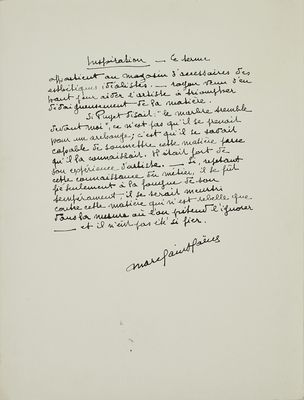 Inspiration — Ce terme
appartient au magasin d'accessoires des
esthétiques idéalistes. — rayon venu d'en
haut pour aider l'artiste à triompher
dédaigneusement de la matière.
Si Puget disait: "le marbre tremble
devant moi", ce n'est pas qu'il se prenait
pour un archange; c'est qu'il se savait
capable de soumettre cette matière parce
qu'il la connaissait. Il était fort de
son expérience d'artiste. — Si, rejetant
cette connaissance du métier, il se fût
fié seulement à la fougue de son
tempérament, il se serait meurtri
contre cette matière qui n'est rebelle que
dans la mesure où l'on prétend l'ignorer
— et il n'eût pas été si fier.
Marc Saint-Saëns